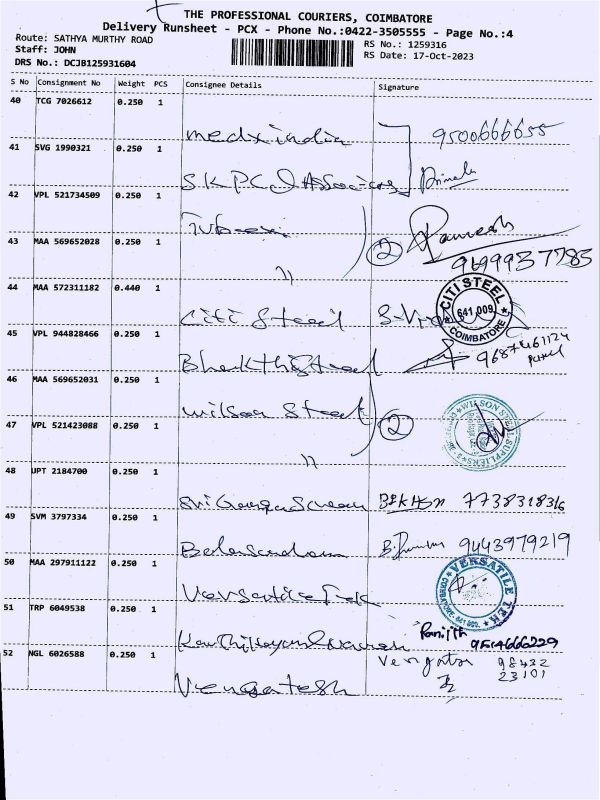 THE PROFESSIONAL COURIERS, COIMBATORE
Delivery Runsheet - PCX - Phone No.:0422-3505555 - Page No.:4
Route: SATHYA MURTHY ROAD
RS No.: 1259316
Staff: JOHN
RS Date: 17-Oct-2023
DRS No.: DCJB125931604
S No Consignment No Weight PCS Consignee Details Signature
40 TCG 7026612 0.250 1
medxindia 9500666655
41 SVG 1990321 0.250 1
SKPC & Associates
42 VPL 521734509 0.250 1
2 Ramesh
43 MAA 569652028 0.250 1
" 9699937783
44 MAA 572311182 0.440 1
CITI STEEL 641 009 COIMBATORE
Citi Steel
45 VPL 944828466 0.250 1
Bhakthi Steel 9687461124
46 MAA 569652031 0.250 1
Wilson Steel 2 WILSON STEEL SUPPLIERS
47 VPL 521423088 0.250 1
"
48 UPT 2184700 0.250 1
Sri Ganga Screen 7738318316
49 SVM 3797334 0.250 1
Balasundaram 9443979219
50 MAA 297911122 0.250 1
Versatile Tek VERSATILE TEK
51 TRP 6049538 0.250 1
Ranjith 9514666229
52 NGL 6026588 0.250 1
98432
23101
Vengatesh